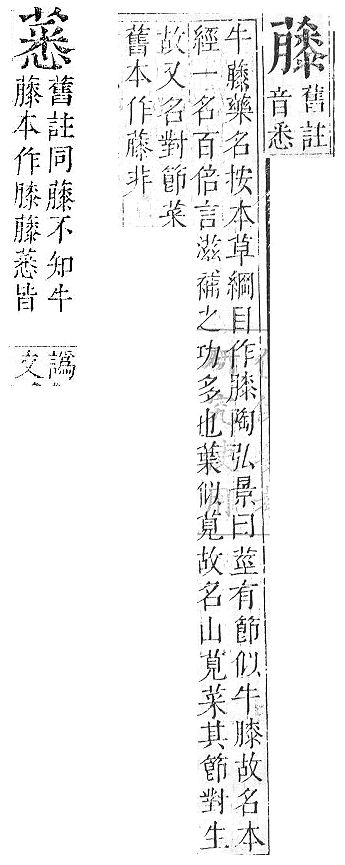 舊註
音悉
牛藥名按本草綱目作膝陶弘景曰莖有節似牛膝故名本
經一名百倍言滋補之功多也葉似莧故名山莧菜其節對生
故又名對節菜
舊本作非
舊註同不知牛
本作膝皆
譌
文